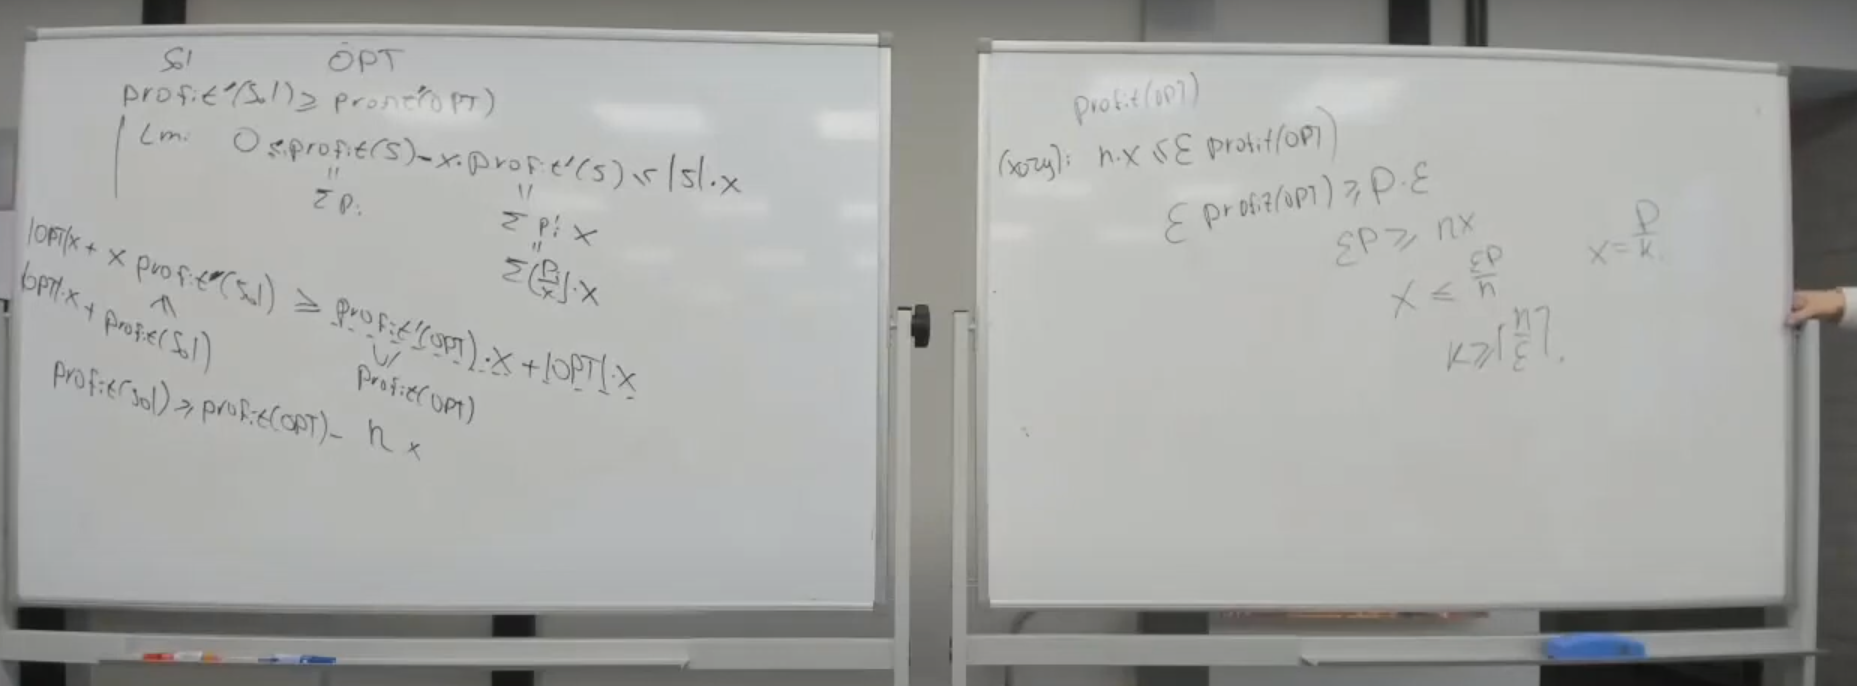 Sol OPT
profit'(Sol) ≥ profit'(OPT)
Lm. 0 ≤ profit(S) - x·profit'(S) ≤ |S|·x
" "
Σ Pi Σ Pi' X
"
Σ⌊Pi/x⌋·X
|OPT|x + x profit'(Sol) ≥ profit'(OPT)·X + |OPT|·X
|OPT|·x + profit(Sol) profit(OPT)
profit(Sol) ≥ profit(OPT) - n x
profit(OPT)
(хочу): n·x ≤ ε profit(OPT)
ε profit(OPT) ≥ P·ε
εP ≥ nx
x = P/k
X ≤ εP/n
k ≥ ⌈n/ε⌉.